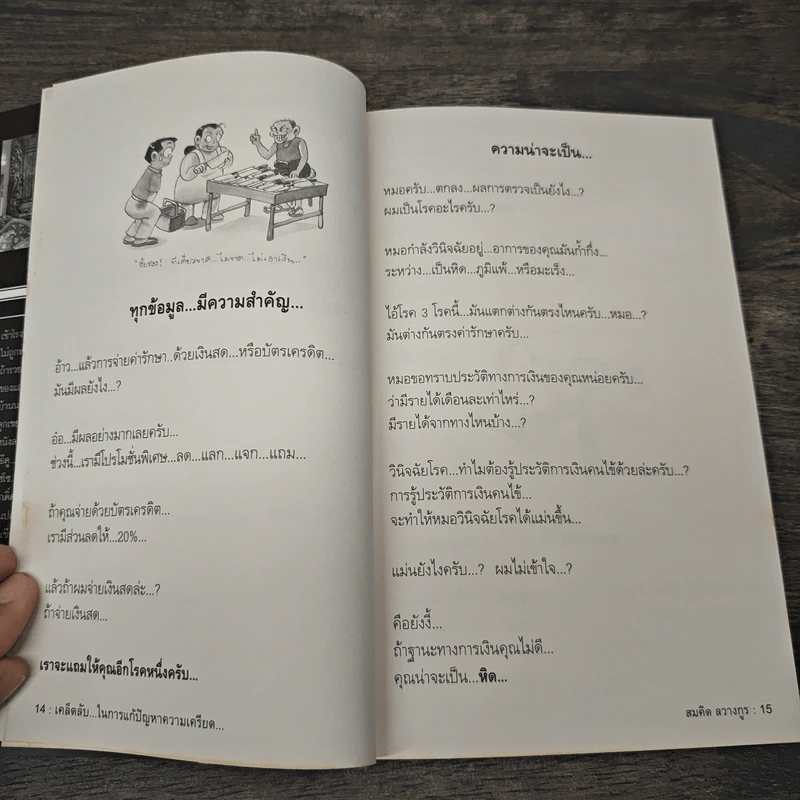 ทุกข้อมูล...มีความสำคัญ...
อ้าว...แล้วการจ่ายค่ารักษา..ด้วยเงินสด...หรือบัตรเครดิต...
มันมีผลยังไง...?
อ๋อ...มีผลอย่างมากเลยครับ...
ช่วงนี้...เรามีโปรโมชั่นพิเศษ...ลด...แลก...แจก...แถม...
ถ้าคุณจ่ายด้วยบัตรเครดิต...
เรามีส่วนลดให้...20%...
แล้วถ้าผมจ่ายเงินสดล่ะ...?
ถ้าจ่ายเงินสด...
เราจะแถมให้คุณอีกโรคหนึ่งครับ...
14 : เคล็ดลับ...ในการแก้ปัญหาความเครียด...
ความน่าจะเป็น...
หมอครับ...ตกลง...ผลการตรวจเป็นยังไง...?
ผมเป็นโรคอะไรครับ...?
หมอกำลังวินิจฉัยอยู่...อาการของคุณมันก้ำกึ่ง...
ระหว่าง...เป็นหิด...ภูมิแพ้...หรือมะเร็ง...
ไอ้โรค 3 โรคนี้...มันแตกต่างกันตรงไหนครับ...หมอ...?
มันต่างกันตรงค่ารักษาครับ...
หมอขอทราบประวัติทางการเงินของคุณหน่อยครับ...
ว่ามีรายได้เดือนละเท่าไหร่...?
มีรายได้จากทางไหนบ้าง...?
วินิจฉัยโรค...ทำไมต้องรู้ประวัติการเงินคนไข้ด้วยล่ะครับ...?
การรู้ประวัติการเงินคนไข้...
จะทำให้หมอวินิจฉัยโรคได้แม่นขึ้น...
แม่นยังไงครับ...? ผมไม่เข้าใจ...?
คือยังงี้...
ถ้าฐานะทางการเงินคุณไม่ดี...
คุณน่าจะเป็น...หิด...
สมคิด ลวางกูร : 15